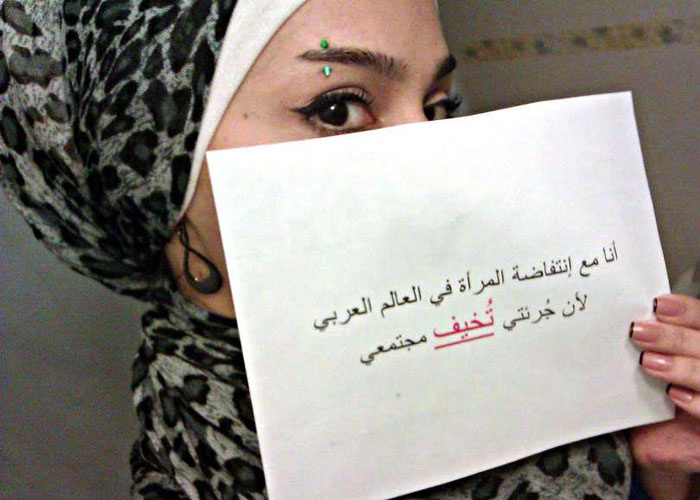 أنا مع إنتفاضة المرأة في العالم العربي
لأن جُرئتي تُخيف مجتمعي